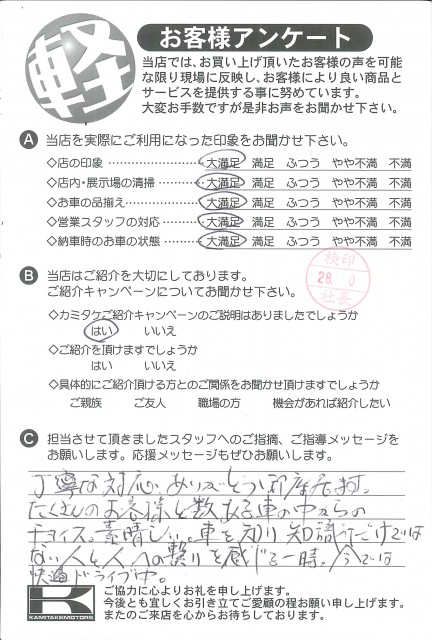 軽
お客様アンケート
当店では、お買い上げ頂いたお客様の声を可能
な限り現場に反映し、お客様により良い商品と
サービスを提供する事に努めています。
大変お手数ですが是非お声をお聞かせ下さい。
A 当店を実際にご利用になった印象をお聞かせ下さい。
◇店の印象 大満足 満足 ふつう やや不満 不満
◇店内・展示場の清掃 大満足 満足 ふつう やや不満 不満
◇お車の品揃え 大満足 満足 ふつう やや不満 不満
◇営業スタッフの対応 大満足 満足 ふつう やや不満 不満
◇納車時のお車の状態 大満足 満足 ふつう やや不満 不満
B 当店はご紹介を大切にしております。
ご紹介キャンペーンについてお聞かせ下さい。
検印
28.
社長
◇カミタケご紹介キャンペーンのご説明はありましたでしょうか
はい いいえ
◇ご紹介を頂けますでしょうか
はい いいえ
◇具体的にご紹介頂ける方とのご関係をお聞かせ頂けますでしょうか
ご親族 ご友人 職場の方 機会があれば紹介したい
C 担当させて頂きましたスタッフへのご指摘、ご指導メッセージを
お願いします。応援メッセージもぜひお願いします。
丁寧な対応、ありがとう御座居ます。
たくさんのお客様と数ある車の中からの
チョイス。素晴しい。車を知り知識だけでは
ない人と人への繋りを感じる一時。今では
快適ドライブ中。
K
KAMITAKEMOTORS
ご協力に心よりお礼を申し上げます。
今後とも宜しくお引き立てご愛顧の程お願い申し上げます。
またのご来店を心からお待ちしております。